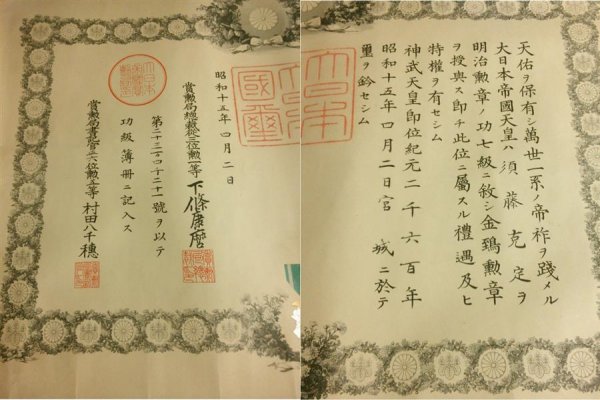 天佑ヲ保有シ萬世一系ノ帝祚ヲ踐メル
大日本帝國天皇ハ須藤克定ヲ
明治勲章ノ功七級ニ敍シ金鵄勲章
ヲ授與ス即チ此位ニ屬スル禮遇及ヒ
特權ヲ有セシム
神武天皇即位紀元二千六百年
昭和十五年四月二日宮城ニ於テ
璽ヲ鈐セシム
大日本
國璽
昭和十五年四月二日
賞勲局總裁從三位勲一等下條康麿
第二十三万四千二十一號ヲ以テ
功級簿冊ニ記入ス
賞勲局書記官六位勲五等村田八千穗